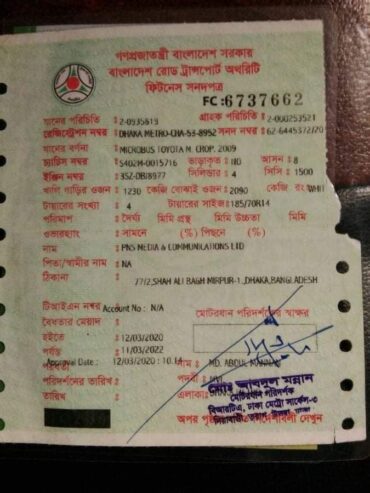 গণপ্রজাতন্ত্রী বাংলাদেশ সরকার
বাংলাদেশ রোড ট্রান্সপোর্ট অথরিটি
ফিটনেস সনদপত্র
FC:6737662
যানের পরিচিতি : 2-0935819 গ্রাহক পরিচিতি : 2-000253521
রেজিস্ট্রেশন নম্বর : DHAKA METRO-CHA-53-8952 সনদ নম্বর : 62-6445372/20
যানের বর্ণনা : MICROBUS TOYOTA M. CROP. 2009
চ্যাসিস নম্বর : S402M-0015716 ভাড়াকৃত : NO আসন : 8
ইঞ্জিন নম্বর : 3SZ-DBJ8977 সিলিন্ডার : 4 সিসি : 1500
খালি গাড়ির ওজন : 1230 কেজি বোঝাই ওজন : 2090 কেজি রং WHIT
টায়ারের সংখ্যা : 4 টায়ারের সাইজ : 185/70R14
পরিমাপ : দৈর্ঘ্য মিমি প্রস্থ মিমি উচ্চতা মিমি
ওভারহ্যাং : সামনে (%) পিছনে (%)
নাম : PNS MEDIA & COMMUNICATIONS LTD
পিতা/স্বামীর নাম : NA
ঠিকানা : 77/2,SHAH ALI BAGH MIRPUR-1,DHAKA,BANGLADESH
টিআইএন নম্বর : Account No : N/A মোটরযান পরিদর্শকের স্বাক্ষর
বৈধতার মেয়াদ :
হইতে : 12/03/2020
পর্যন্ত : 11/03/2022
Approval Date : 12/03/2020 : 10:14 নাম : MD. ABDUL MANNAN
পরিদর্শনের তারিখ : পদবী :
তারিখ : এলাকা :
মোঃ আবদুল মান্নান
মোটরযান পরিদর্শক
বিআরটিএ, ঢাকা মেট্রো সার্কেল-৩
অপর পৃষ্ঠার দেখুন